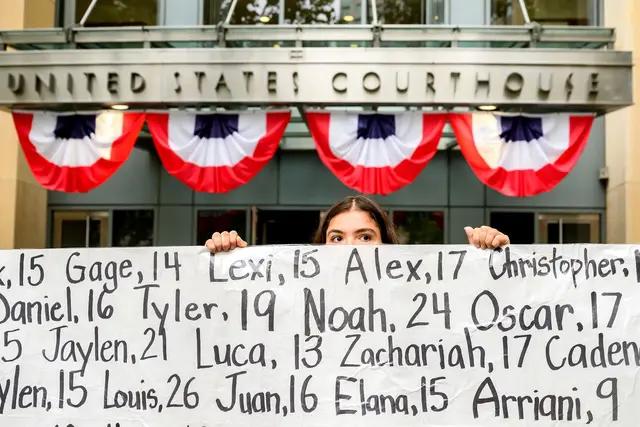 UNITED STATES COURTHOUSE
15 Gage, 14 Lexi, 15 Alex, 17 Christopher,
Daniel, 16 Tyler, 19 Noah, 24 Oscar, 17
5 Jaylen, 21 Luca, 13 Zachariah, 17 Caden
15 Louis, 26 Juan, 16 Elana, 15 Arriani, 9